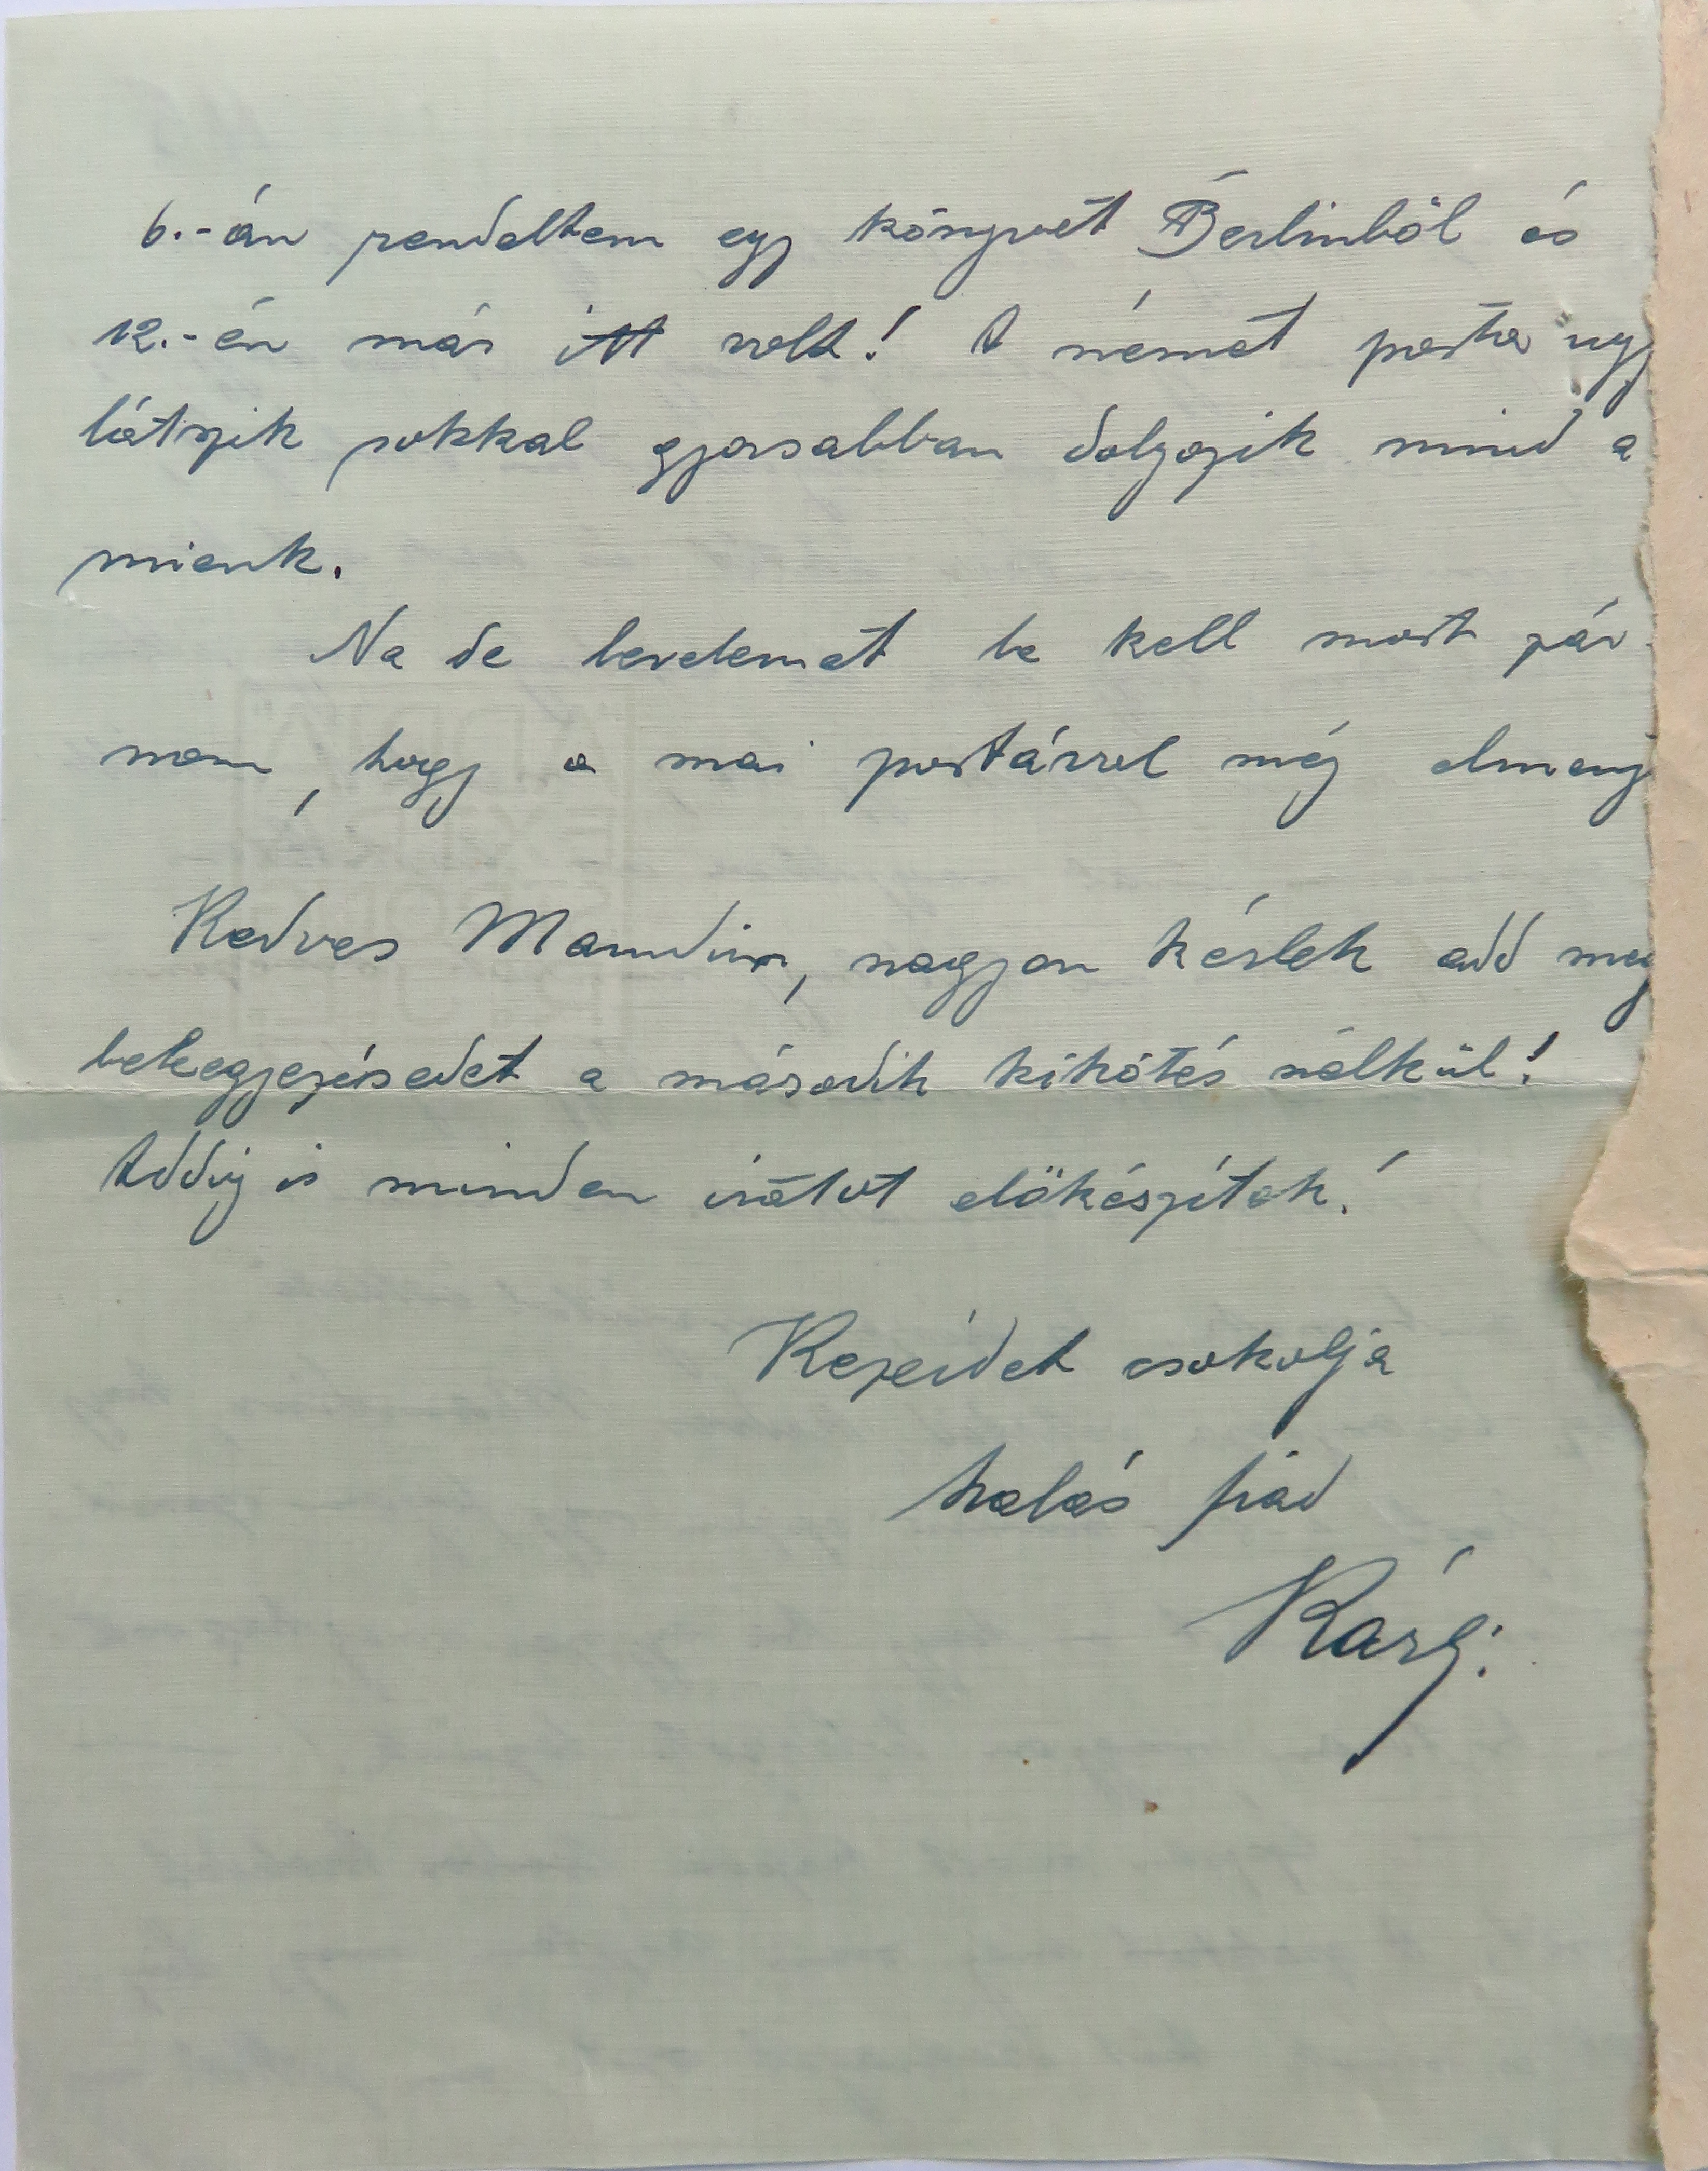 6.-án rendeltem egy könyvet Berlinböl és
12.-én már itt volt! A német posta ugy
látszik sokkal gyorsabban dolgozik mind a
mienk.
Na de levelemet be kell most zár-
nom, hogy a mai postával még elmenj
Kedves Mamám, nagyon kérlek add meg
beleegyezésedet a második kikötés nélkül!
Addig is minden irátot elökészítek!
Kezeidet csokolja
halás fiad